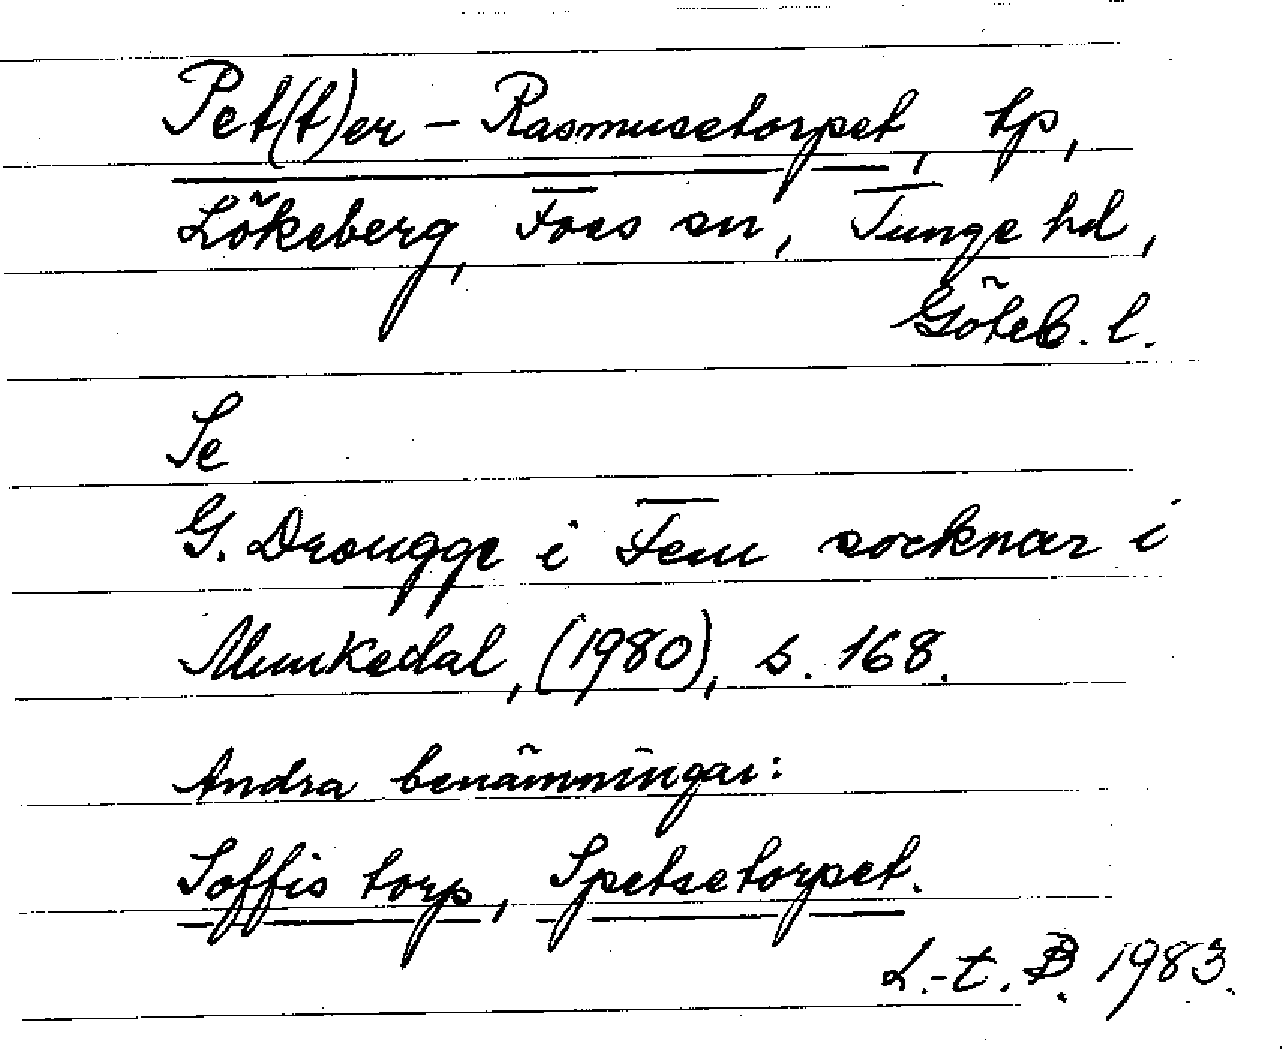 Pet(t)er - Rasmusetorpet, tp,
Lökeberg, Foss sn, Tunge hd,
Göteb. l.
Se
G. Drougge i Fem socknar i
Munkedal, (1980), s. 168.
Andra benämningar:
Soffis torp, Spetsetorpet.
L.-t. B. 1983.